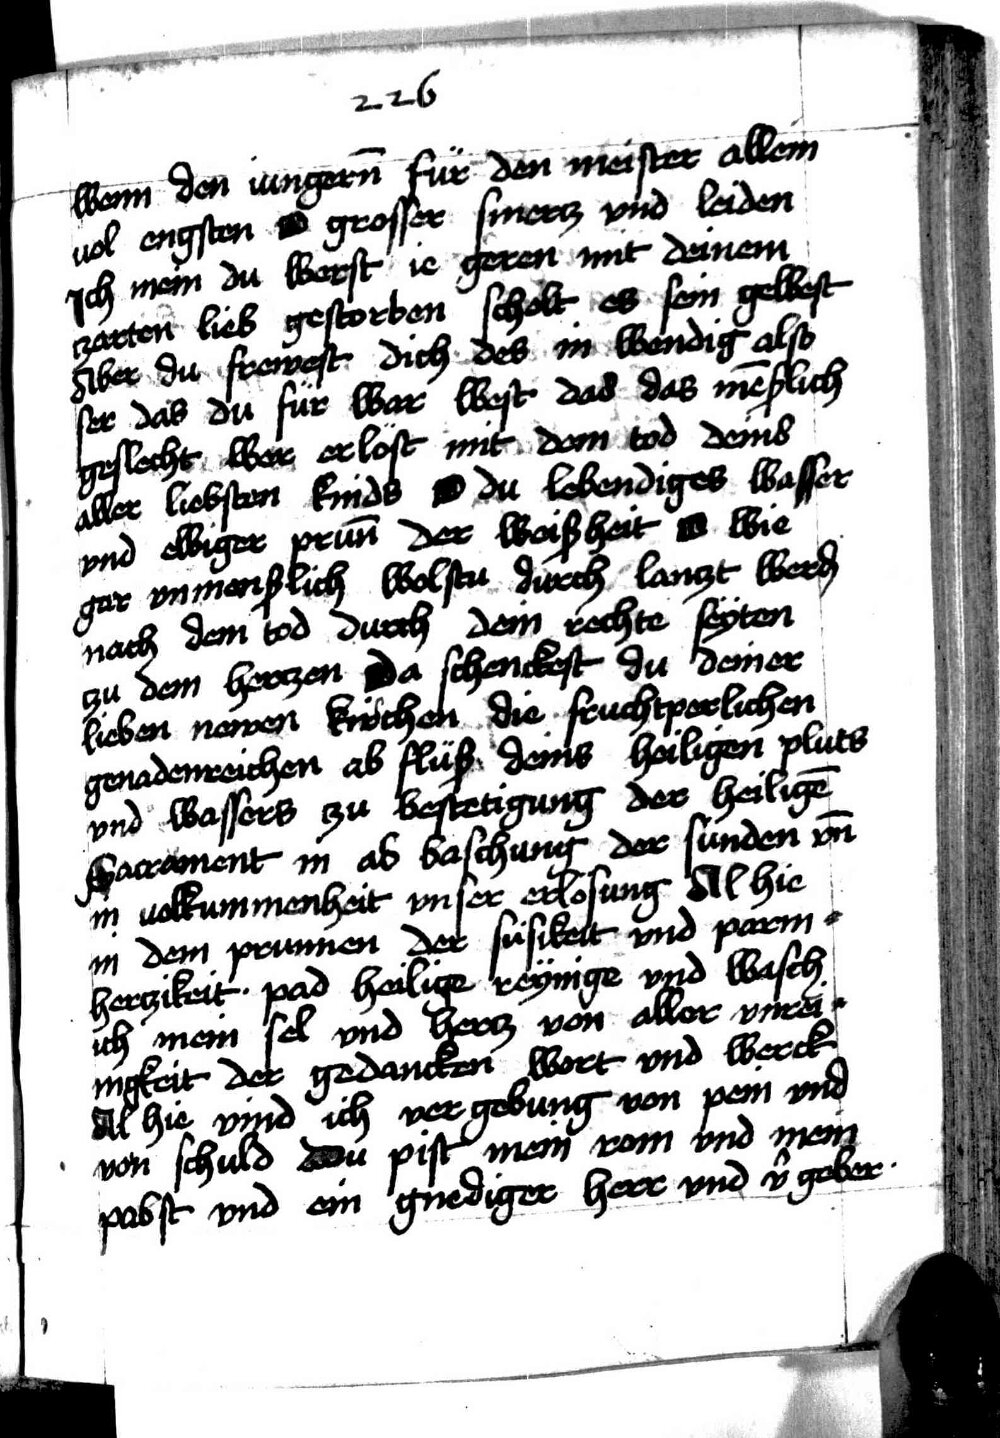 226
wenn den iungern̄ für den meister allein
vol engsten O grosser smertz vnd leiden
Ich mein du werst ie geren mit deinem
zarten lieb gestorben scholt es sein gewest
Aber du frewest dich des in wendig also
ser das du für war west das das mēschlich
geslecht wer erlöst mit dem tod deins
aller liebsten kinds O du lebendiges wasser
vnd ewiger prun̄ der weißheit O wie
gar vnmenschlich wolstu durch lantzt werdē
nach dem tod durch dein rechte seyten
tzu dem hertzen Da schenckest du deiner
lieben newen kirchen die fruchtperlichen
genadenreichen ab flüß deins heiligen pluts
vnd wassers tzu bestetigung der heiligē
Sacrament in ab baschung der sünden vn̄
in volkummenheit vnser erlösung Al hie
in dem prunnen der süsikeit vnd parm⸗
hertzikeit. pad heilige reynige vnd wasch
ich mein sel vnd hertz von aller vnrei⸗
nigkeit der gedancken wort vnd werck
Al hie vind ich vergebung von pein vnd
von schuld Du pist mein rom vnd mein
pabst vnd ein gnediger herr vnd v̂geber.